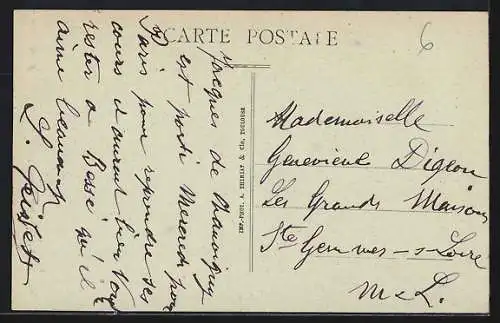 CARTE POSTALE
6
Jacques de Chauvigny
est parti Mercredi pour
Paris pour reprendre ses
cours il aurait bien
rester à qu'il
aime beaucoup
IMP.-PHOT. A. THIRIAT & Cie, TOULOUSE
Mademoiselle
Geneviève Digeon
Les Grands Maisons
Ste Gemmes-s-Loire
M&L.